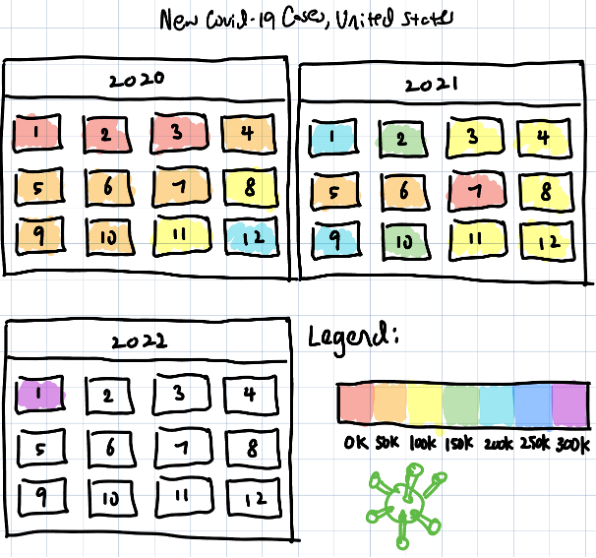 New Covid-19 Cases, United States
2020
1 2 3 4
5 6 7 8
9 10 11 12
2021
1 2 3 4
5 6 7 8
9 10 11 12
2022
1 2 3 4
5 6 7 8
9 10 11 12
Legend:
0K 50K 100K 150K 200K 250K 300K